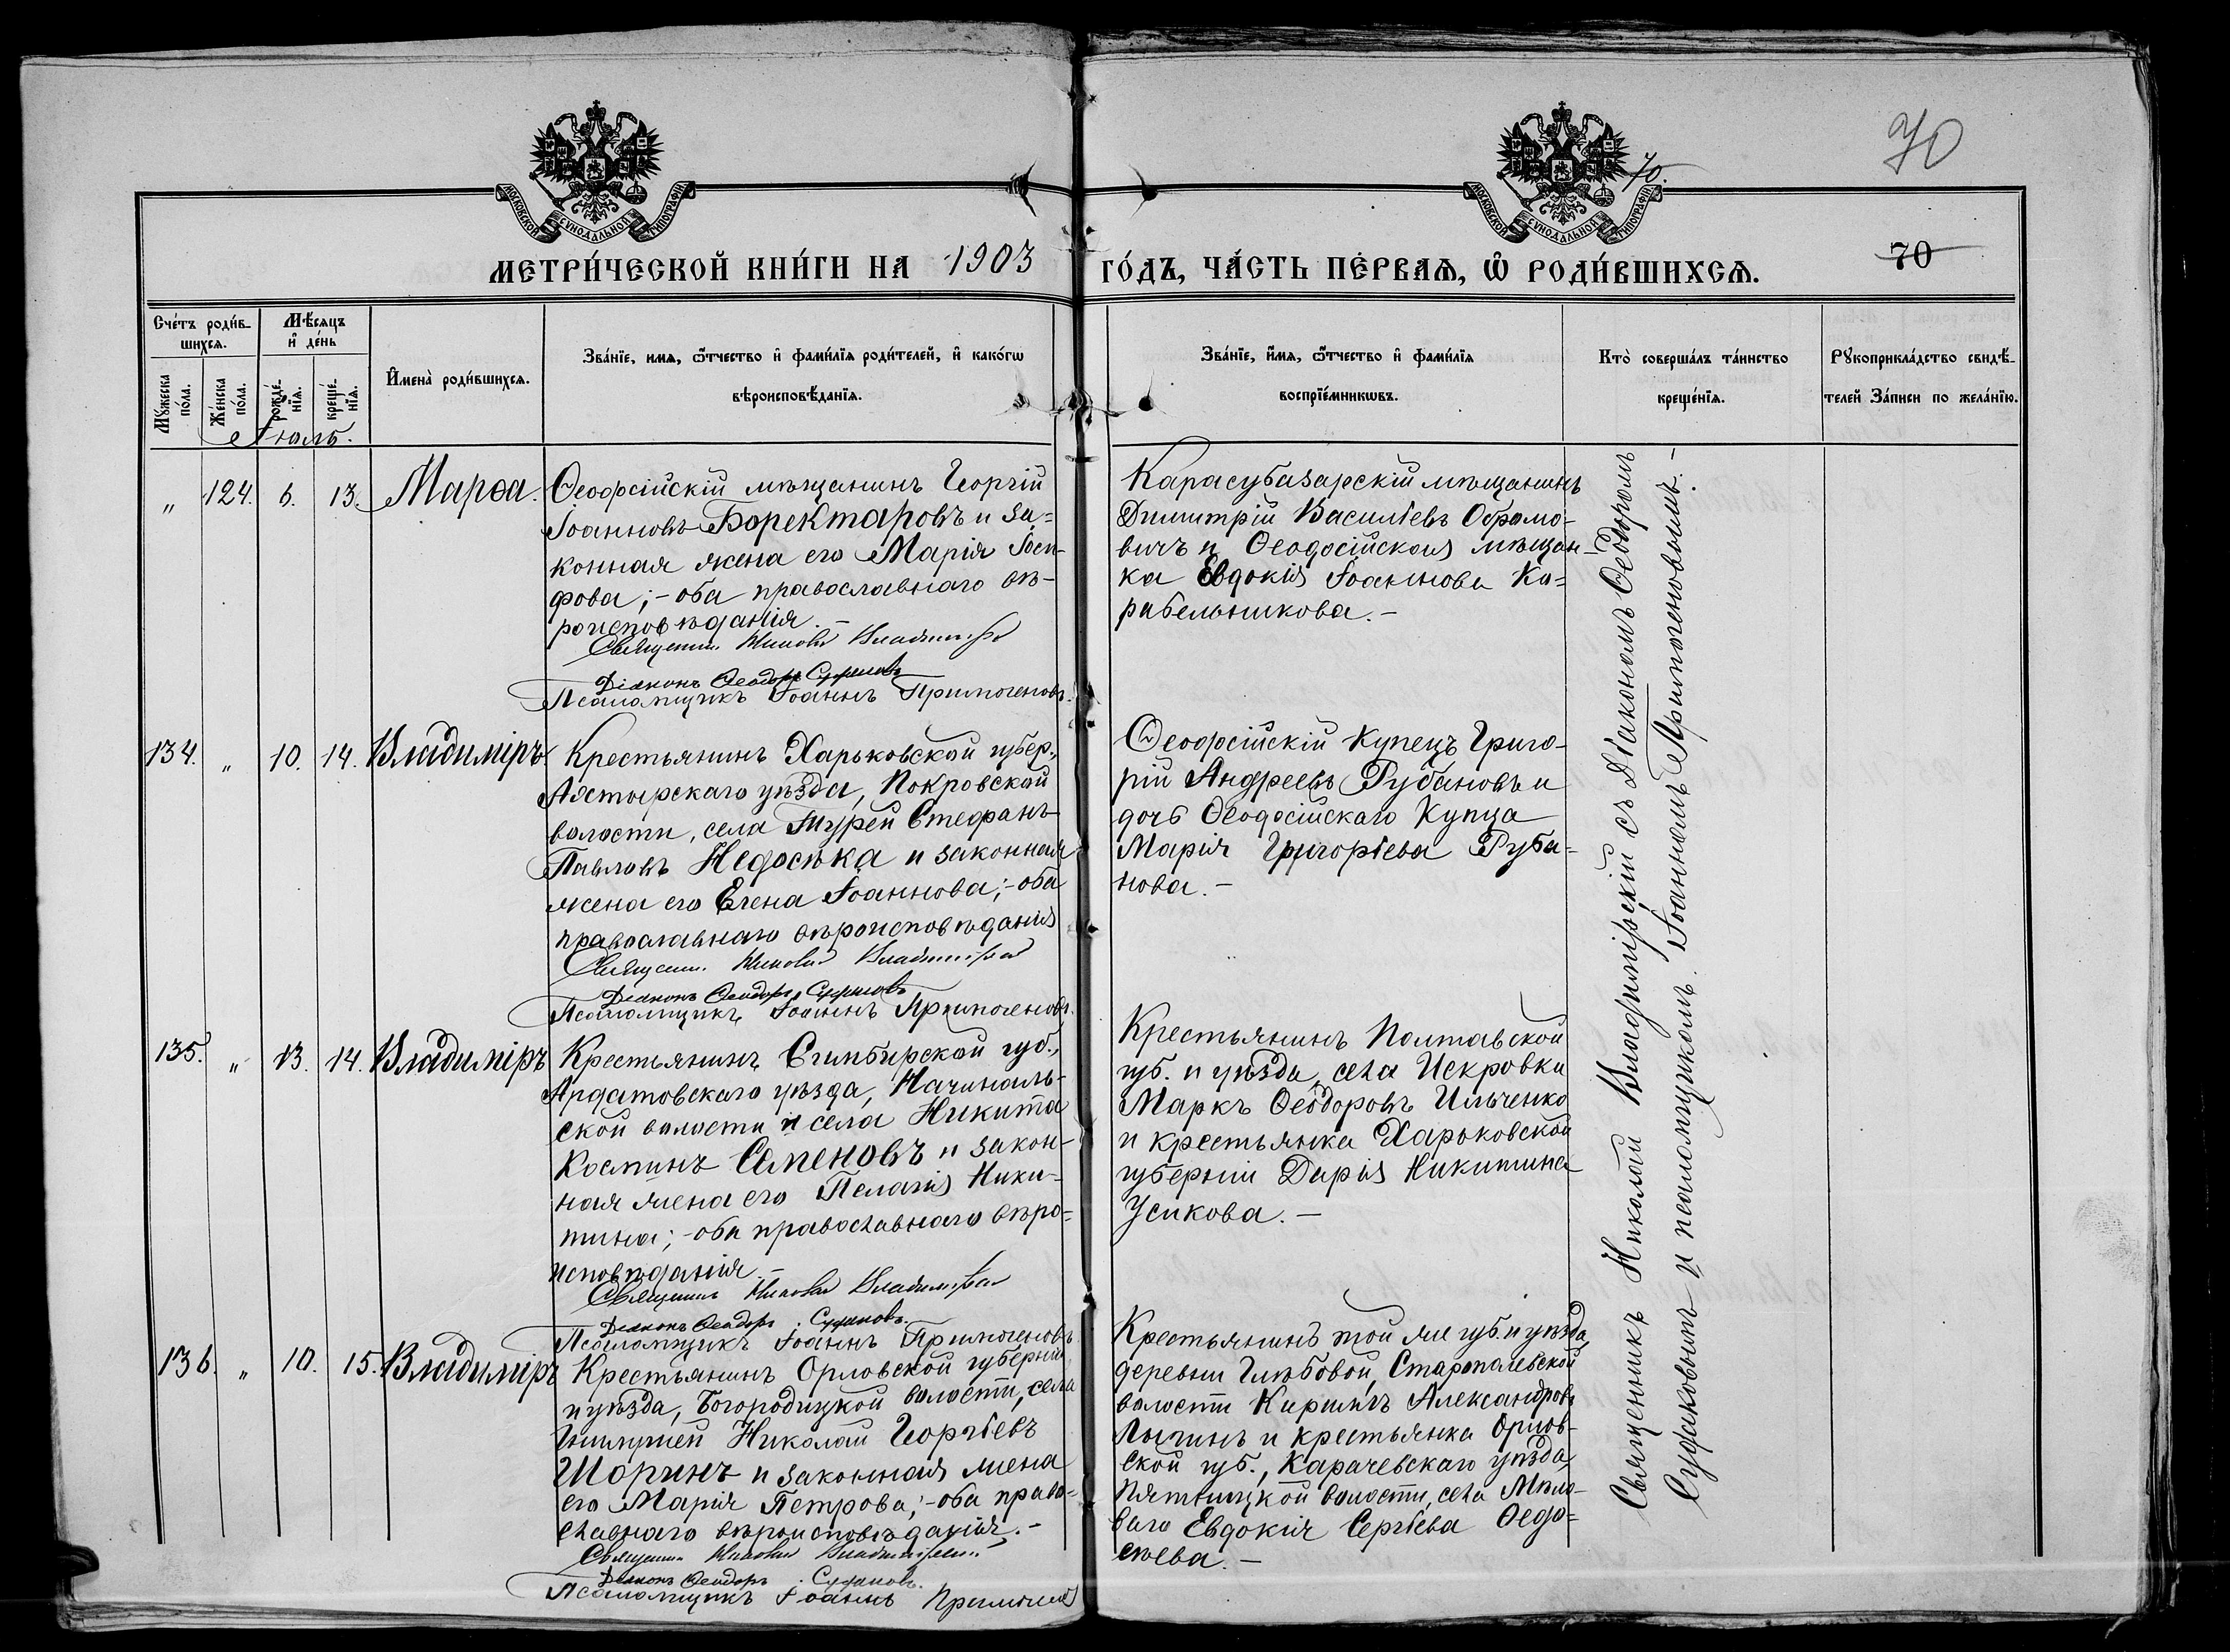 70
70.
МОСКОВСКОЙ СѴНОДАЛЬНОЙ ТИПОГРАФІИ
МОСКОВСКОЙ СѴНОДАЛЬНОЙ ТИПОГРАФІИ
МЕТРИ́ЧЕСКОЙ КНИ́ГИ НА 1903 ГО́ДЪ, ЧА́СТЬ ПЕ́РВАѦ, Ѿ РОДИ́ВШИХСѦ.
70
Сче́тъ роди́в-
шихсѧ.
Мꙋ́жеска по́ла.
Же́нска по́ла.
Мѣ́сѧцъ
и҆ де́нь
рожде́-нїѧ.
креще́-нїѧ.
И҆мена̀ роди́вшихсѧ.
Зва́нїе, имѧ, ѻ҆́тчество и҆ фами́лїѧ роди́телей, и҆ како́гѡ
вѣроисповѣ́данїѧ.
Зва́нїе, и҆́мѧ, ѻ҆́тчество и҆ фами́лїѧ
воспрїе́мникѡвъ.
Кто̀ соверша́лъ та́инство
креще́нїѧ.
Рꙋкоприкла́дство свидѣ́-
телей За́писи по жела́нїю.
Іюль.
„ 124. 6. 13. Марѳа.
Ѳеодосійскій мѣщанинъ Георгій
Іоанновъ Боректаровъ и за-
конная жена его Марія Іоси-
фова; - оба православнаго вѣ-
роисповѣданія. -
Священн. Николай Владимірск
Діаконъ Ѳеодоръ Судаковъ
Псаломщикъ Іоаннъ Примогеновъ.
Карасубазарскій мѣщанинъ
Димитрій Васильевъ Обрамо-
вичъ и Ѳеодосійская мѣщан-
ка Евдокія Іоаннова Ка-
рабельникова. -
134. „ 10. 14. Владиміръ
Крестьянинъ Харьковской губер.,
Ахтырскаго уѣзда, Покровской
волости, села Тургеи Стефанъ
Павловъ Недосѣка и законная
жена его Елена Іоаннова; - оба
православнаго вѣроисповѣданія
Священн. Николай Владимірск
Діаконъ Ѳеодоръ Судаковъ
Псаломщикъ Іоаннъ Примогеновъ.
Ѳеодосійскій купецъ Григо-
рій Андреевъ Рубановъ и
дочь Ѳеодосійскаго купца
Марія Григорьева Руба-
нова. -
135. „ 13. 14. Владиміръ
Крестьянинъ Симбирской губ.,
Ардатовскаго уѣзда, Начиналь-
ской волости и села Никита
Косминъ Семеновъ и закон-
ная жена его Пелагія Ники-
тина; - оба православнаго вѣро-
исповѣданія. -
Священникъ Николай Владимірск
Діаконъ Ѳеодоръ Судаковъ.
Псаломщикъ Іоаннъ Примогеновъ
Крестьянинъ Полтавской
губ. и уѣзда, села Искровки
Маркъ Ѳеодоровъ Ильченко
и крестьянка Харьковской
губерніи Дарія Никитина
Усикова. -
136. „ 10. 15. Владиміръ
Крестьянинъ Орловской губерніи
и уѣзда, Богородицкой волости, села
Николай Георгіевъ
Шоринъ и законная жена
его Марія Петрова; - оба право-
славнаго вѣроисповѣданія. -
Священн. Николай Владимірскій
Діаконъ Ѳеодоръ Судаковъ.
Псаломщикъ Іоаннъ Примогеновъ
Крестьянинъ той же губ. и уѣзда,
деревни Глѣбовой, Старопалевской
волости Кириллъ Александровъ
Лыгинъ и крестьянка Орлов-
ской губ., Карачевскаго уѣзда,
Пятницкой волости, села Мѣло-
ваго Евдокія Сергѣева Ѳедо-
сѣева. -
Священникъ Николай Владимірскій съ Діакономъ Ѳеодоромъ
Судаковымъ и псаломщикомъ Іоанномъ Примогеновымъ. -